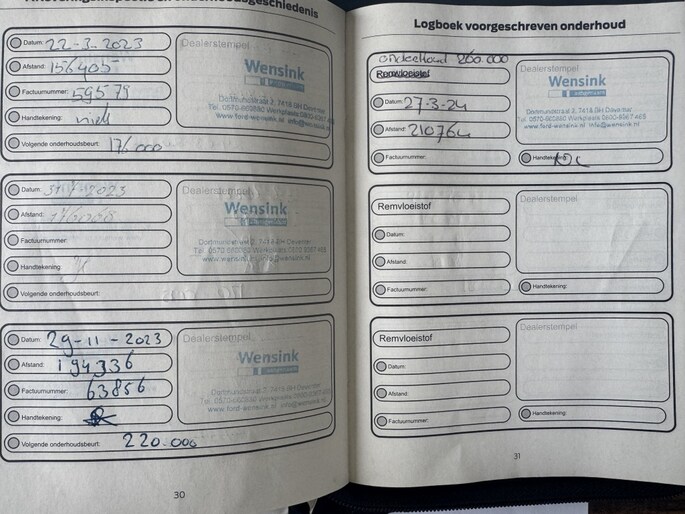 onderhoudsgeschiedenis
Datum: 22-3-2023
Afstand: 156405
Factuurnummer: 59579
Handtekening:
Volgende onderhoudsbeurt: 176000
Dealerstempel
Wensink
Dortmundstraat 2, 7418 BH Deventer
www.ford-wensink.nl info@wensink.nl
Datum: 2023
Afstand:
Factuurnummer:
Handtekening:
Volgende onderhoudsbeurt:
Dealerstempel
Wensink
Dortmundstraat 2, 7418 BH Deventer
Datum: 29-11-2023
Afstand: 194336
Factuurnummer: 63856
Handtekening:
Volgende onderhoudsbeurt: 220.000
Dealerstempel
Wensink
Dortmundstraat 2, 7418 BH Deventer
www.ford-wensink.nl info@wensink.nl
30
Logboek voorgeschreven onderhoud
200.000
Remvloeistof
Datum: 27-3-24
Afstand: 210764
Factuurnummer:
Handtekening:
Dealerstempel
Wensink
Dortmundstraat 2, 7418 BH Deventer
www.ford-wensink.nl info@wensink.nl
Remvloeistof
Datum:
Afstand:
Factuurnummer:
Handtekening:
Dealerstempel
Remvloeistof
Datum:
Afstand:
Factuurnummer:
Handtekening:
Dealerstempel
31